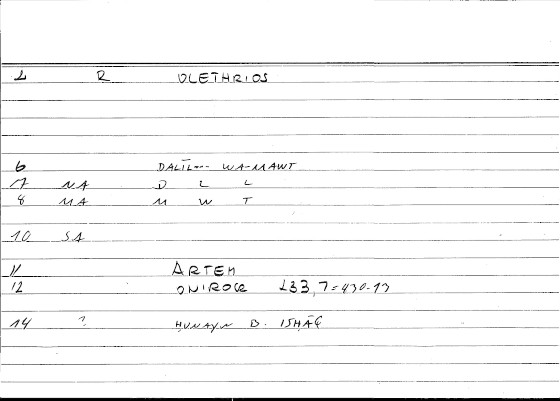 1 R OLETHRIOS
6 DALĪL--- WA-MAWT
7 NA D L L
8 MA M W T
10 SA
11 ARTEM
12 ONIROCR 233,7=430-13
14 ? ḤUNAYN B. ISḤĀQ